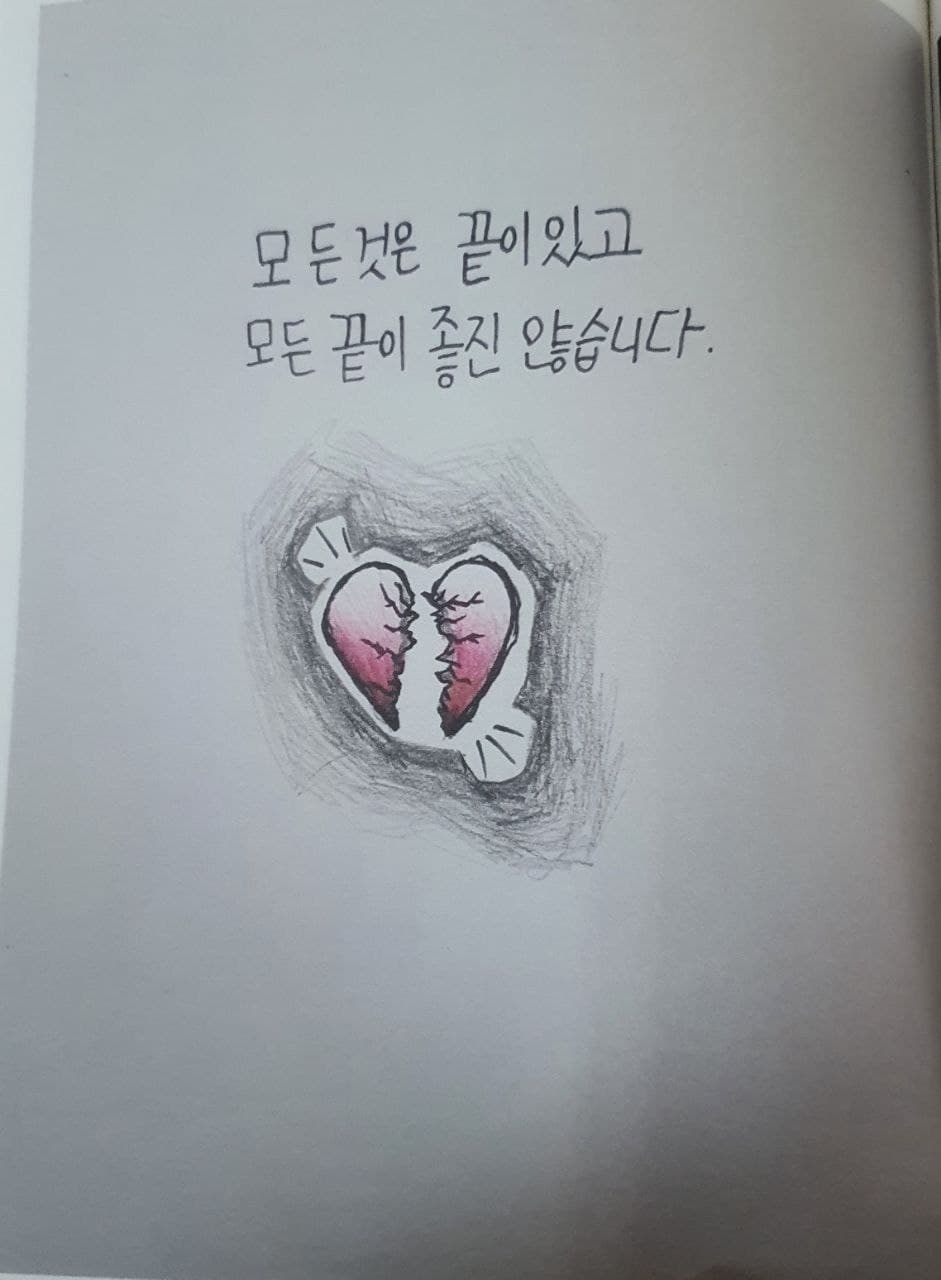 모든것은 끝이있고
모든 끝이 좋진 않습니다.